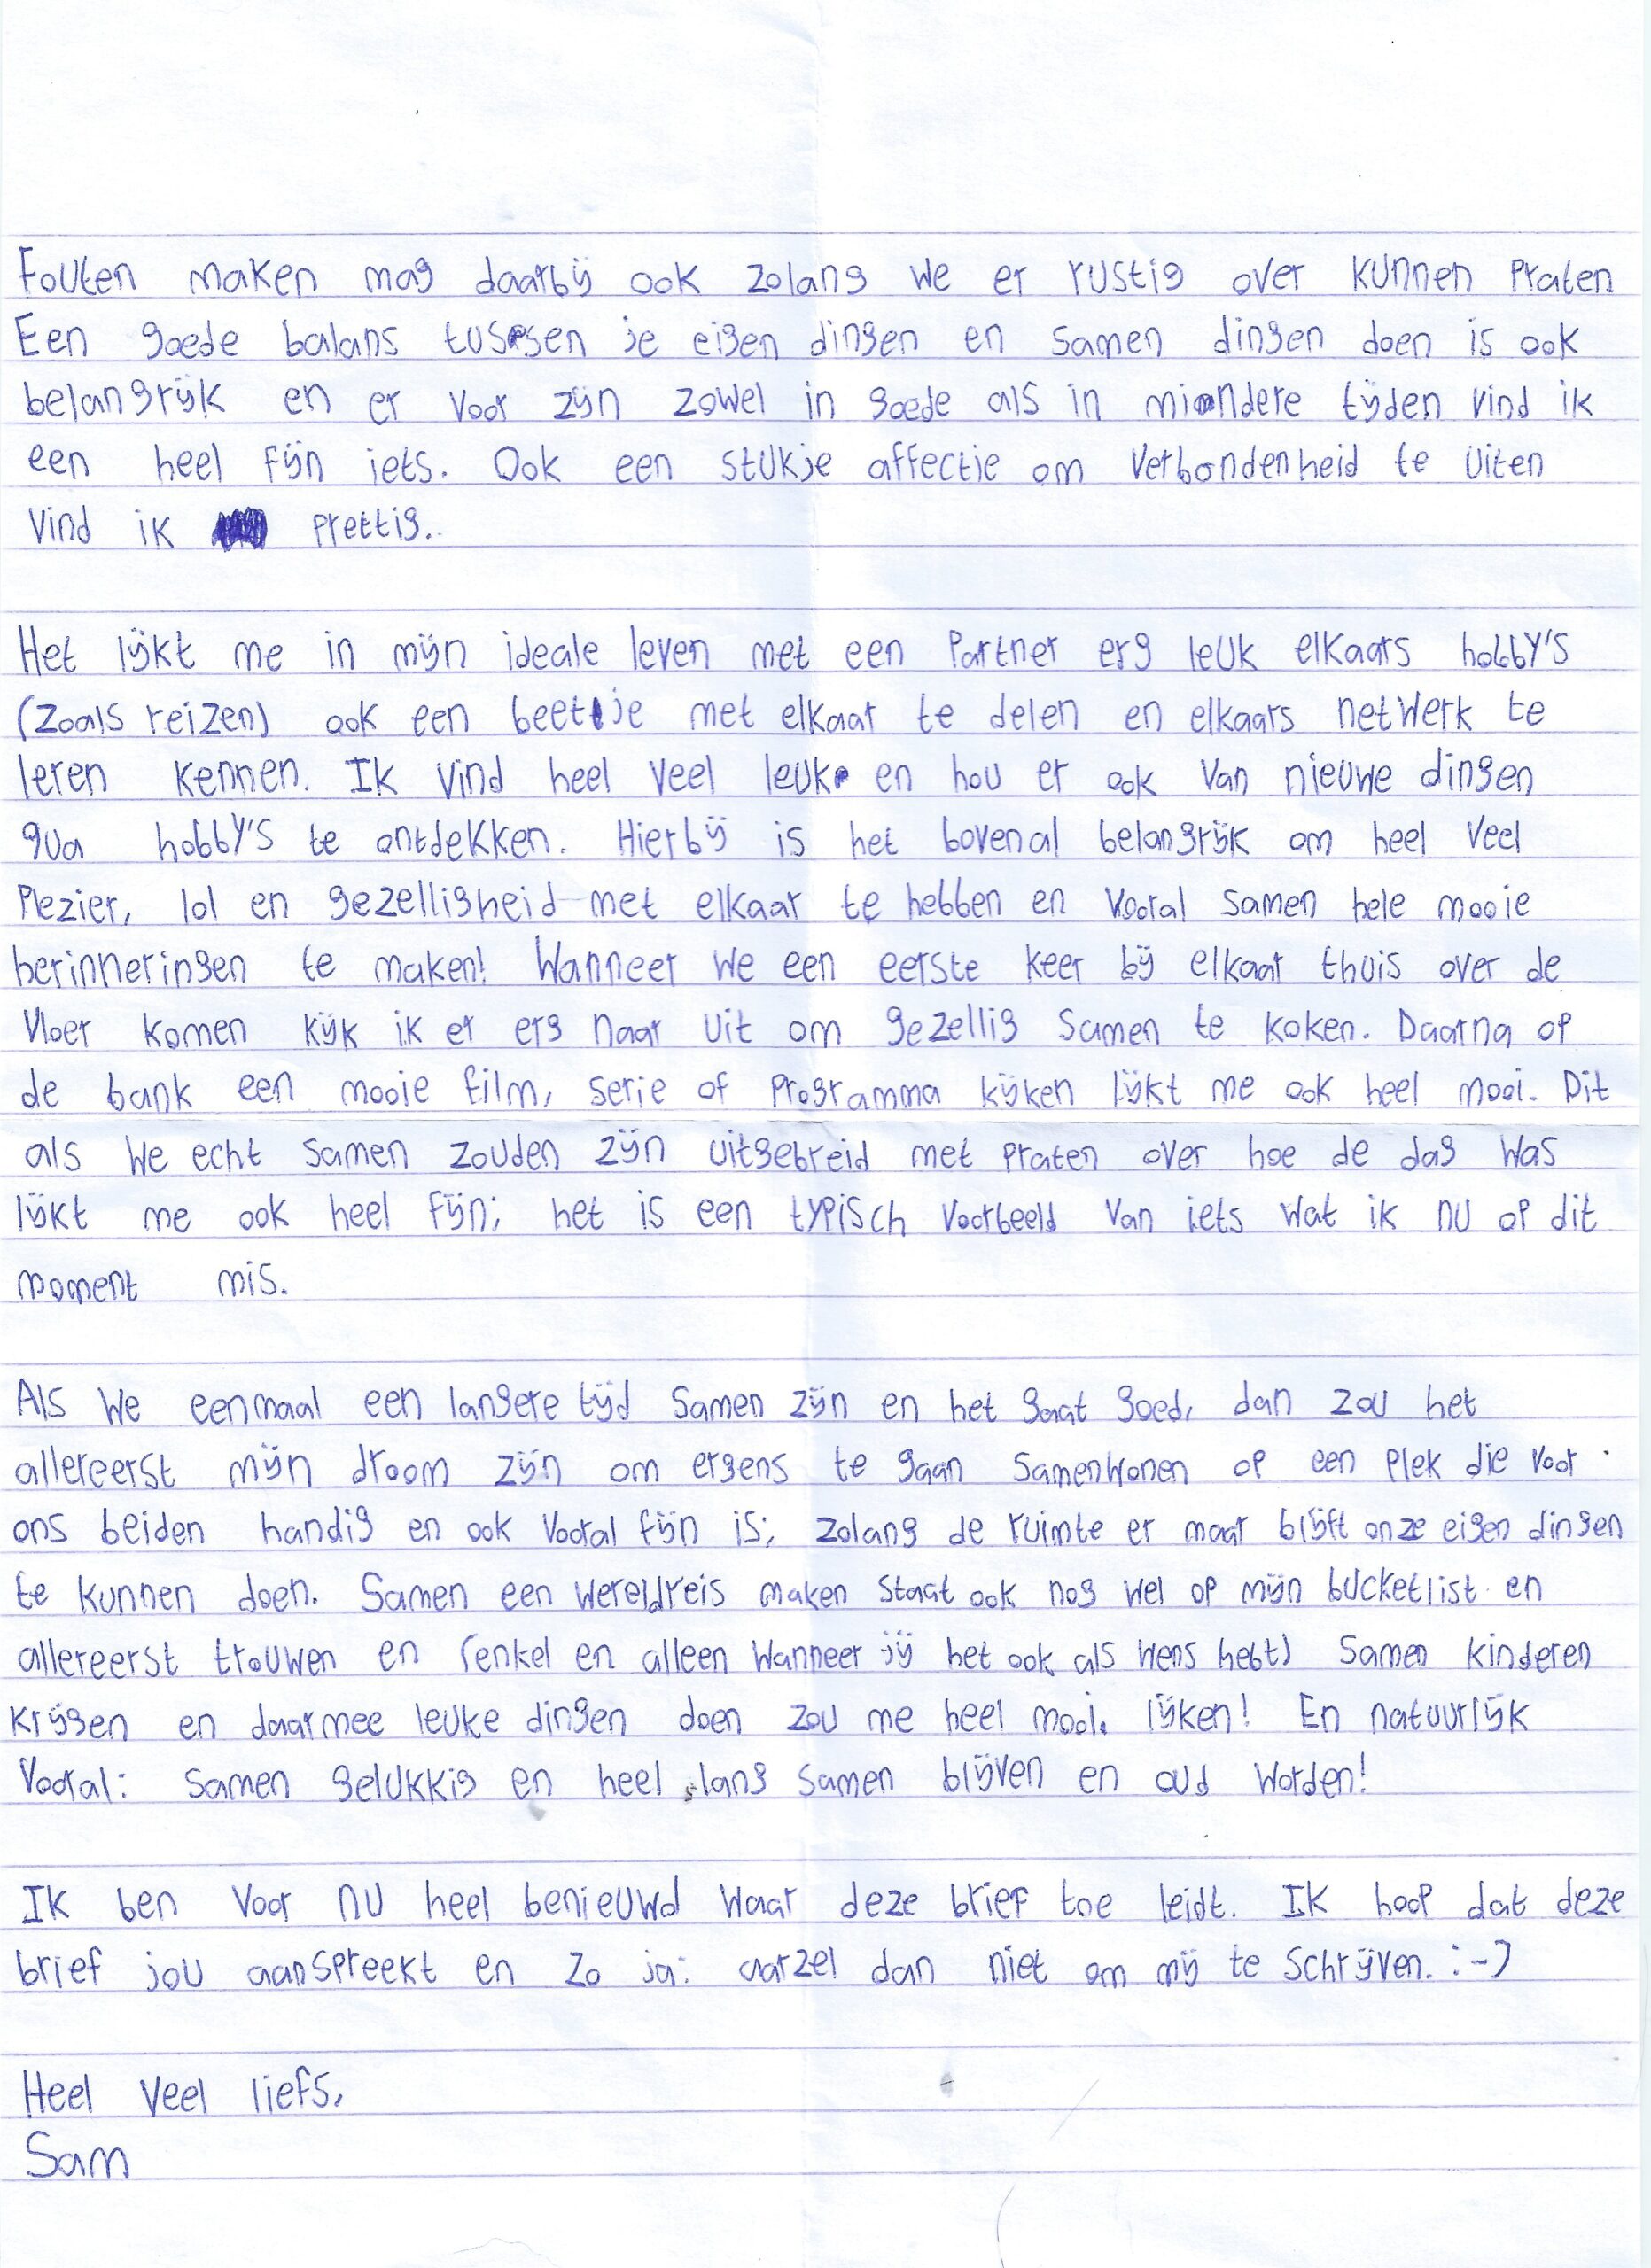 Fouten maken mag daarbij ook zolang we er rustig over kunnen praten
Een goede balans tussen je eigen dingen en samen dingen doen is ook
belangrijk en er voor zijn zowel in goede als in mindere tijden vind ik
een heel fijn iets. Ook een stukje affectie om verbondenheid te uiten
vind ik prettig.
Het lijkt me in mijn ideale leven met een partner erg leuk elkaars hobby's
(zoals reizen) ook een beetje met elkaar te delen en elkaars netwerk te
leren kennen. Ik vind heel veel leuk en hou er ook van nieuwe dingen
qua hobby's te ontdekken. Hierbij is het bovenal belangrijk om heel veel
Plezier, lol en gezelligheid met elkaar te hebben en vooral samen hele mooie
herinneringen te maken! Wanneer we een eerste keer bij elkaar thuis over de
vloer komen kijk ik er erg naar uit om gezellig samen te koken. Daarna op
de bank een mooie film, serie of programma kijken lijkt me ook heel mooi. Dit
als we echt samen zouden zijn uitgebreid met praten over hoe de dag was
lijkt me ook heel fijn; het is een typisch voorbeeld van iets wat ik nu op dit
moment mis.
Als we eenmaal een langere tijd samen zijn en het gaat goed, dan zou het
allereerst mijn droom zijn om ergens te gaan samenwonen op een plek die voor
ons beiden handig en ook vooral fijn is; zolang de ruimte er maar blijft onze eigen dingen
te kunnen doen. Samen een wereldreis maken staat ook nog wel op mijn bucketlist en
allereerst trouwen en (enkel en alleen wanneer jij het ook als wens hebt) samen kinderen
krijgen en daarmee leuke dingen doen zou me heel mooi lijken! En natuurlijk
vooral: samen gelukkig en heel lang samen blijven en oud worden!
Ik ben voor nu heel benieuwd waar deze brief toe leidt. Ik hoop dat deze
brief jou aanspreekt en zo ja: aarzel dan niet om mij te schrijven. :-)
Heel veel liefs,
Sam